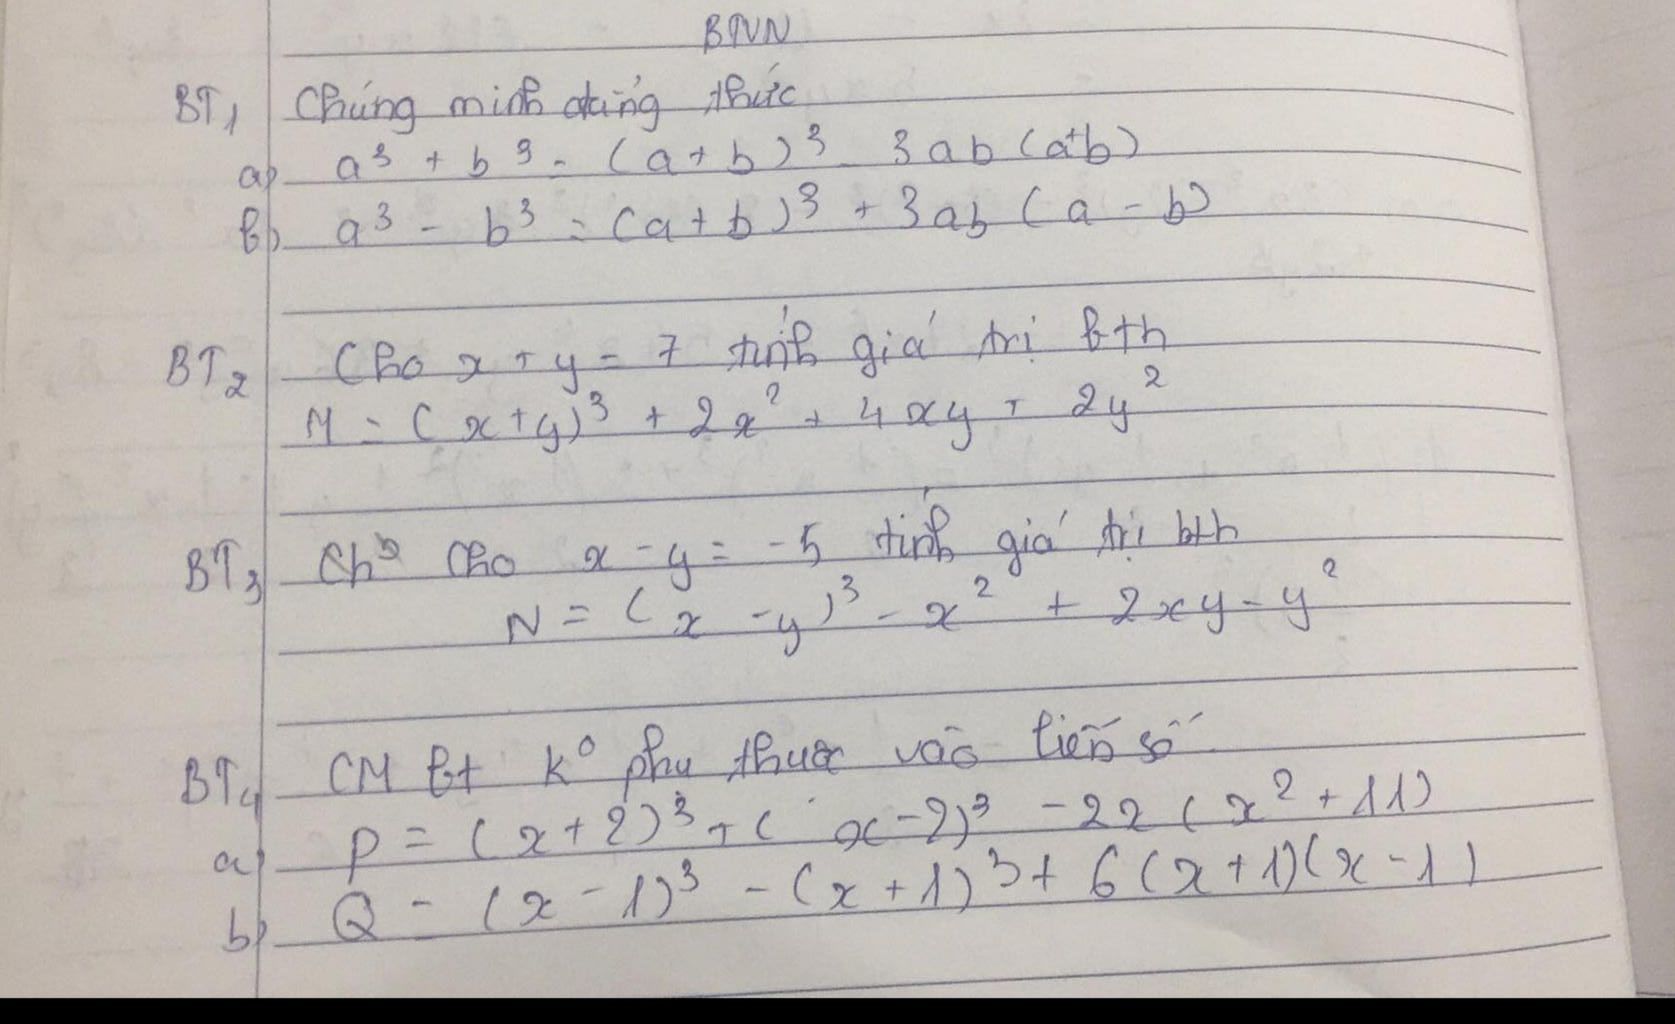 BTVN
BT1 Chứng minh đẳng thức
a) a³ + b³ = (a + b)³ - 3ab (a+b)
b) a³ - b³ = (a + b)³ + 3ab (a - b)
BT2 Cho x + y = 7 tính giá trị bth
M = (x+y)³ + 2x² + 4xy + 2y²
BT3 Cho x - y = -5 tính giá trị bth
N = (x - y)³ - x² + 2xy - y²
BT4 CM bt k° phụ thuộc vào biến số
a) P = (x+2)³ + (x-2)³ - 2x (x² + 11)
b) Q = (x - 1)³ - (x + 1)³ + 6(x+1)(x-1)